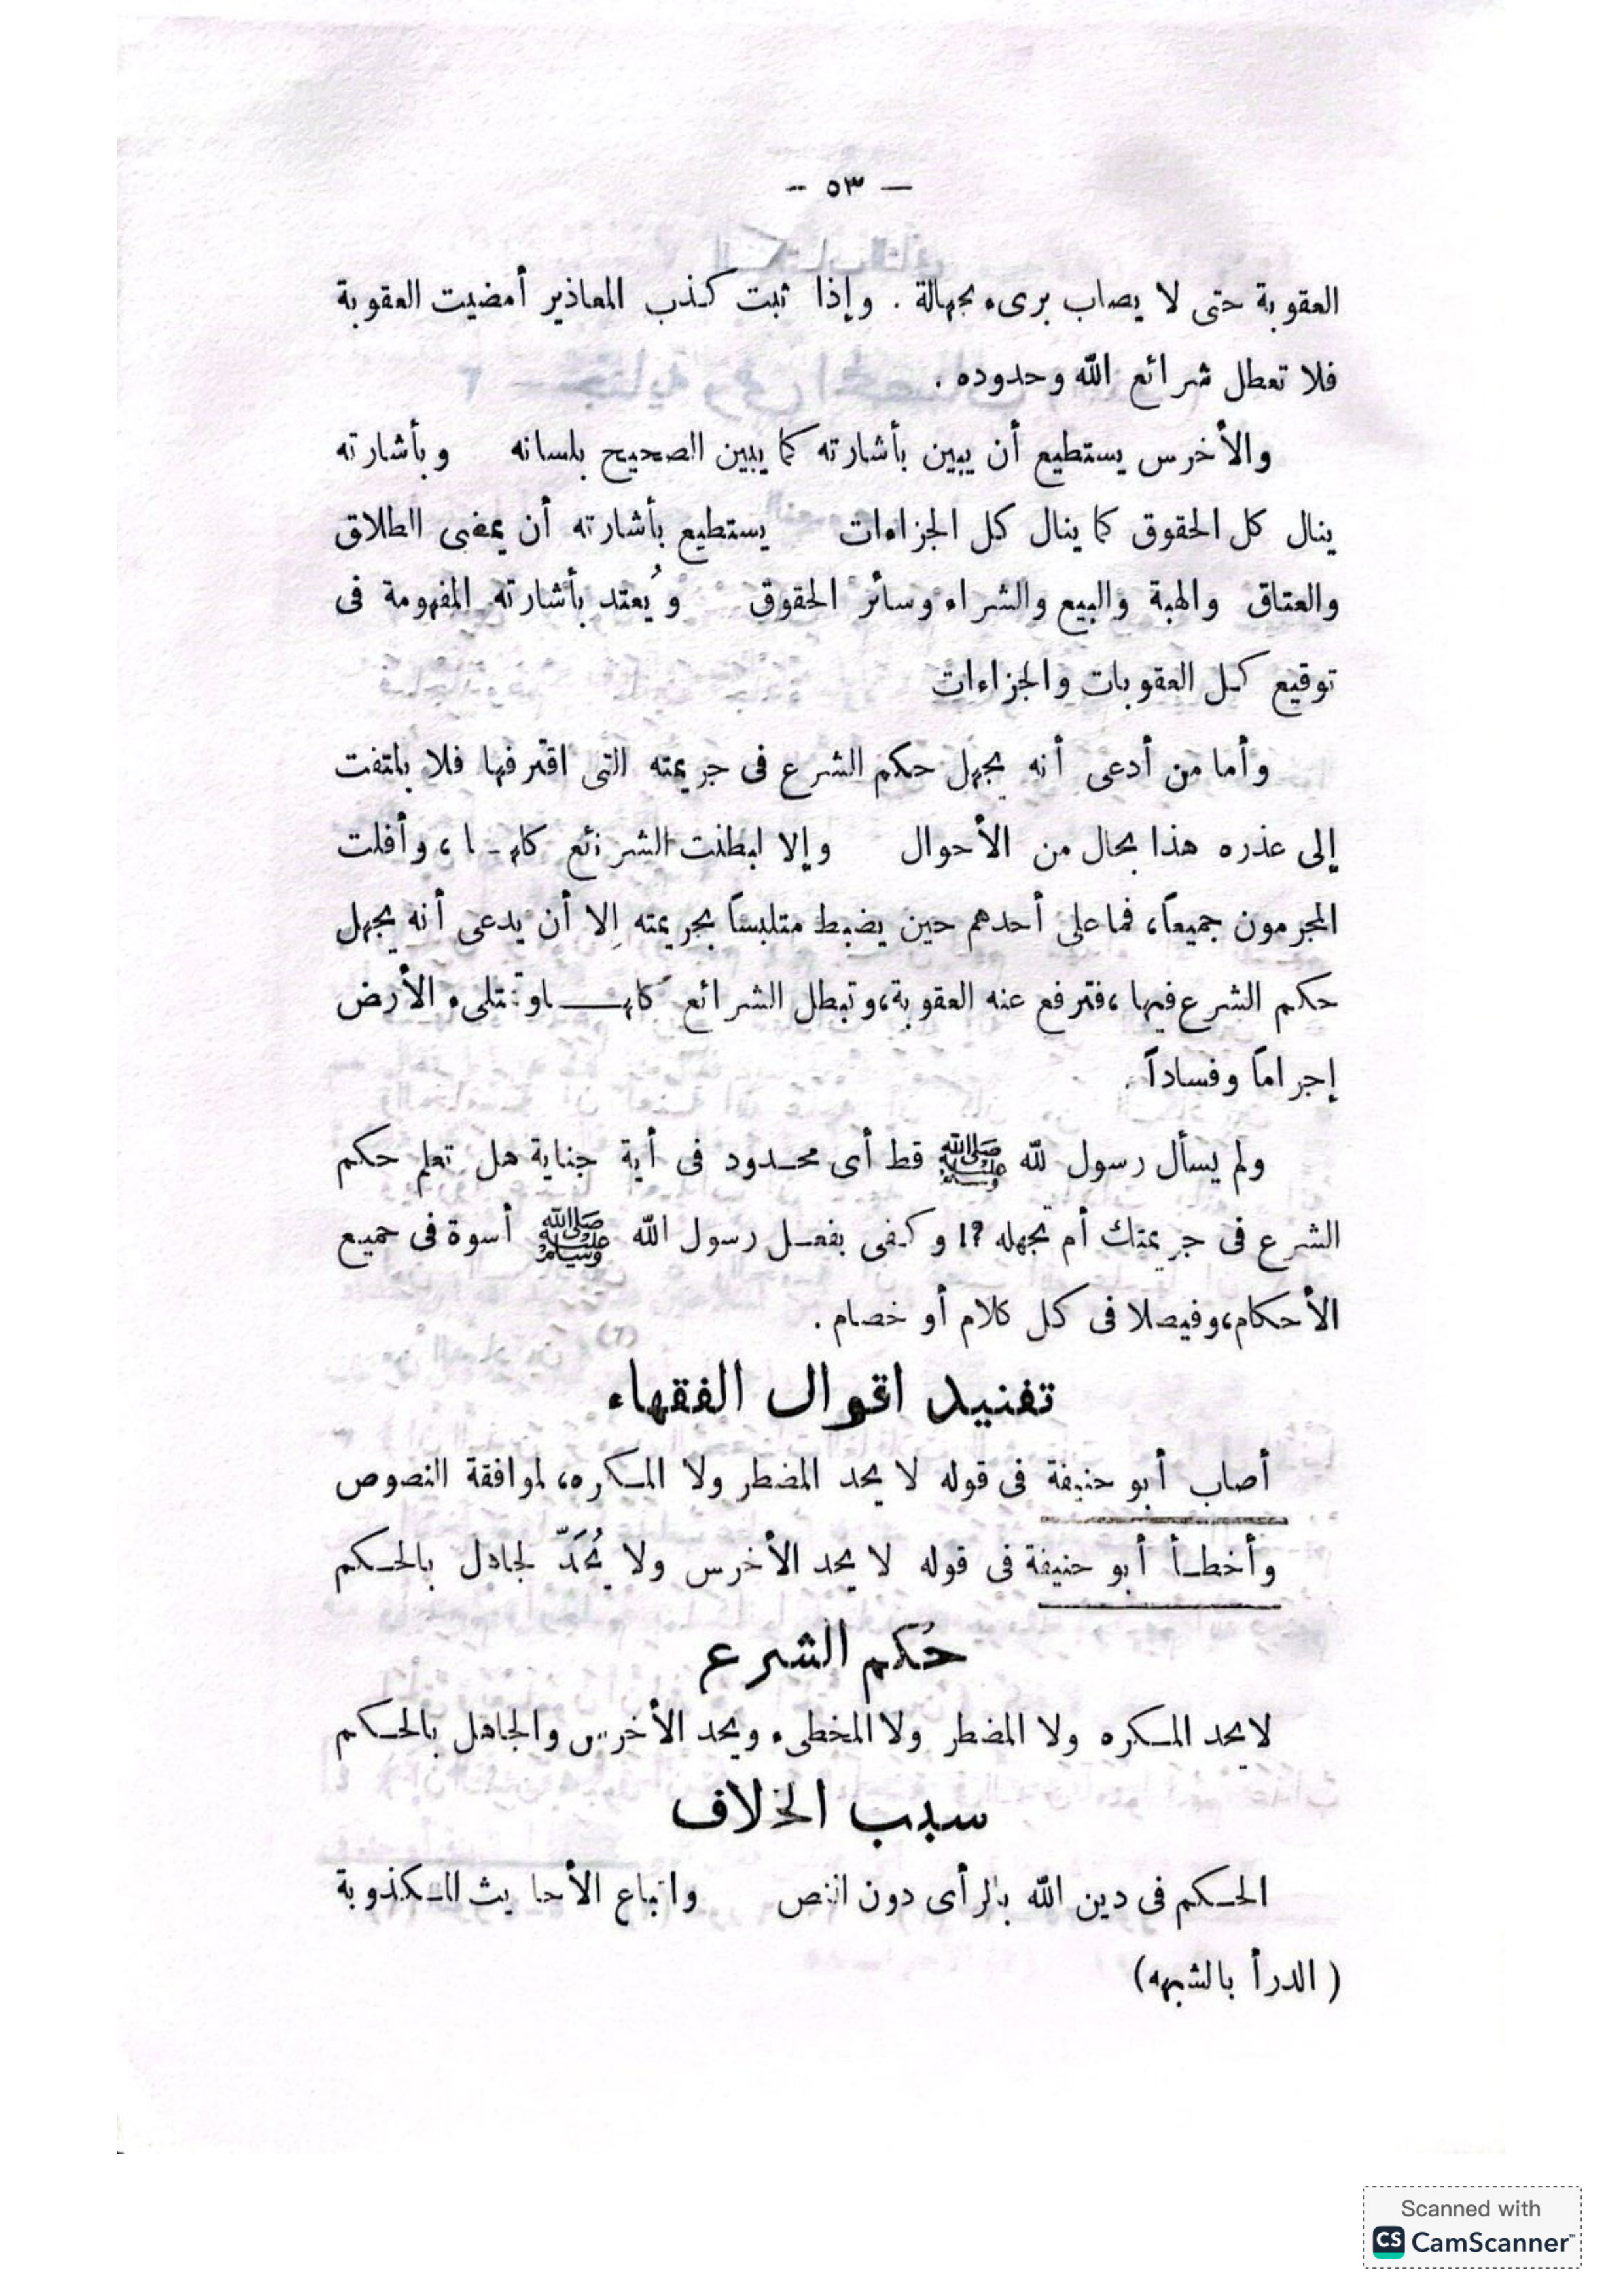 — ٥٣ —
العقوبة حتى لا يصاب برىء بجهالة . وإذا ثبت كذب المعاذير أمضيت العقوبة
فلا تعطل شرائع الله وحدوده .
والأخرس يستطيع أن يبين بأشارته كما يبين الصحيح بلسانه وبأشارته
ينال كل الحقوق كما ينال كل الجزاءات يستطيع بأشارته أن يمضى الطلاق
والعتاق والهبة والبيع والشراء وسائر الحقوق ويُعتد بأشارته المفهومة فى
توقيع كل العقوبات والجزاءات
وأما من أدعى أنه يجهل حكم الشرع فى جريمته التى اقترفها فلا يلتفت
إلى عذره هذا بحال من الأحوال وإلا لبطلت الشرائع كلها، وأفلت
المجرمون جميعاً، فما على أحدهم حين يضبط متلبساً بجريمته إلا أن يدعى أنه يجهل
حكم الشرع فيها، فترفع عنه العقوبة، وتبطل الشرائع كلها وتمتلىء الأرض
إجراماً وفساداً .
ولم يسأل رسول لله ﷺ قط أى محدود فى أية جناية هل تعلم حكم
الشرع فى جريمتك أم تجهله ?! وكفى بفعل رسول الله ﷺ أسوة فى جميع
الأحكام، وفيصلا فى كل كلام أو خصام .
تفنيد اقوال الفقهاء
أصاب أبو حنيفة فى قوله لا يحد المضطر ولا المكره، لموافقة النصوص
وأخطأ أبو حنيفة فى قوله لا يحد الأخرس ولا يُحَدّ لجادل بالحكم
حُكم الشرع
لا يحد المكره ولا المضطر ولا المخطىء ويحد الأخرس والجاهل بالحكم
سبب الخلاف
الحكم فى دين الله بالرأى دون النص واتباع الأحاديث المكذوبة
( الدرأ بالشبهه)
Scanned with
CS CamScanner™